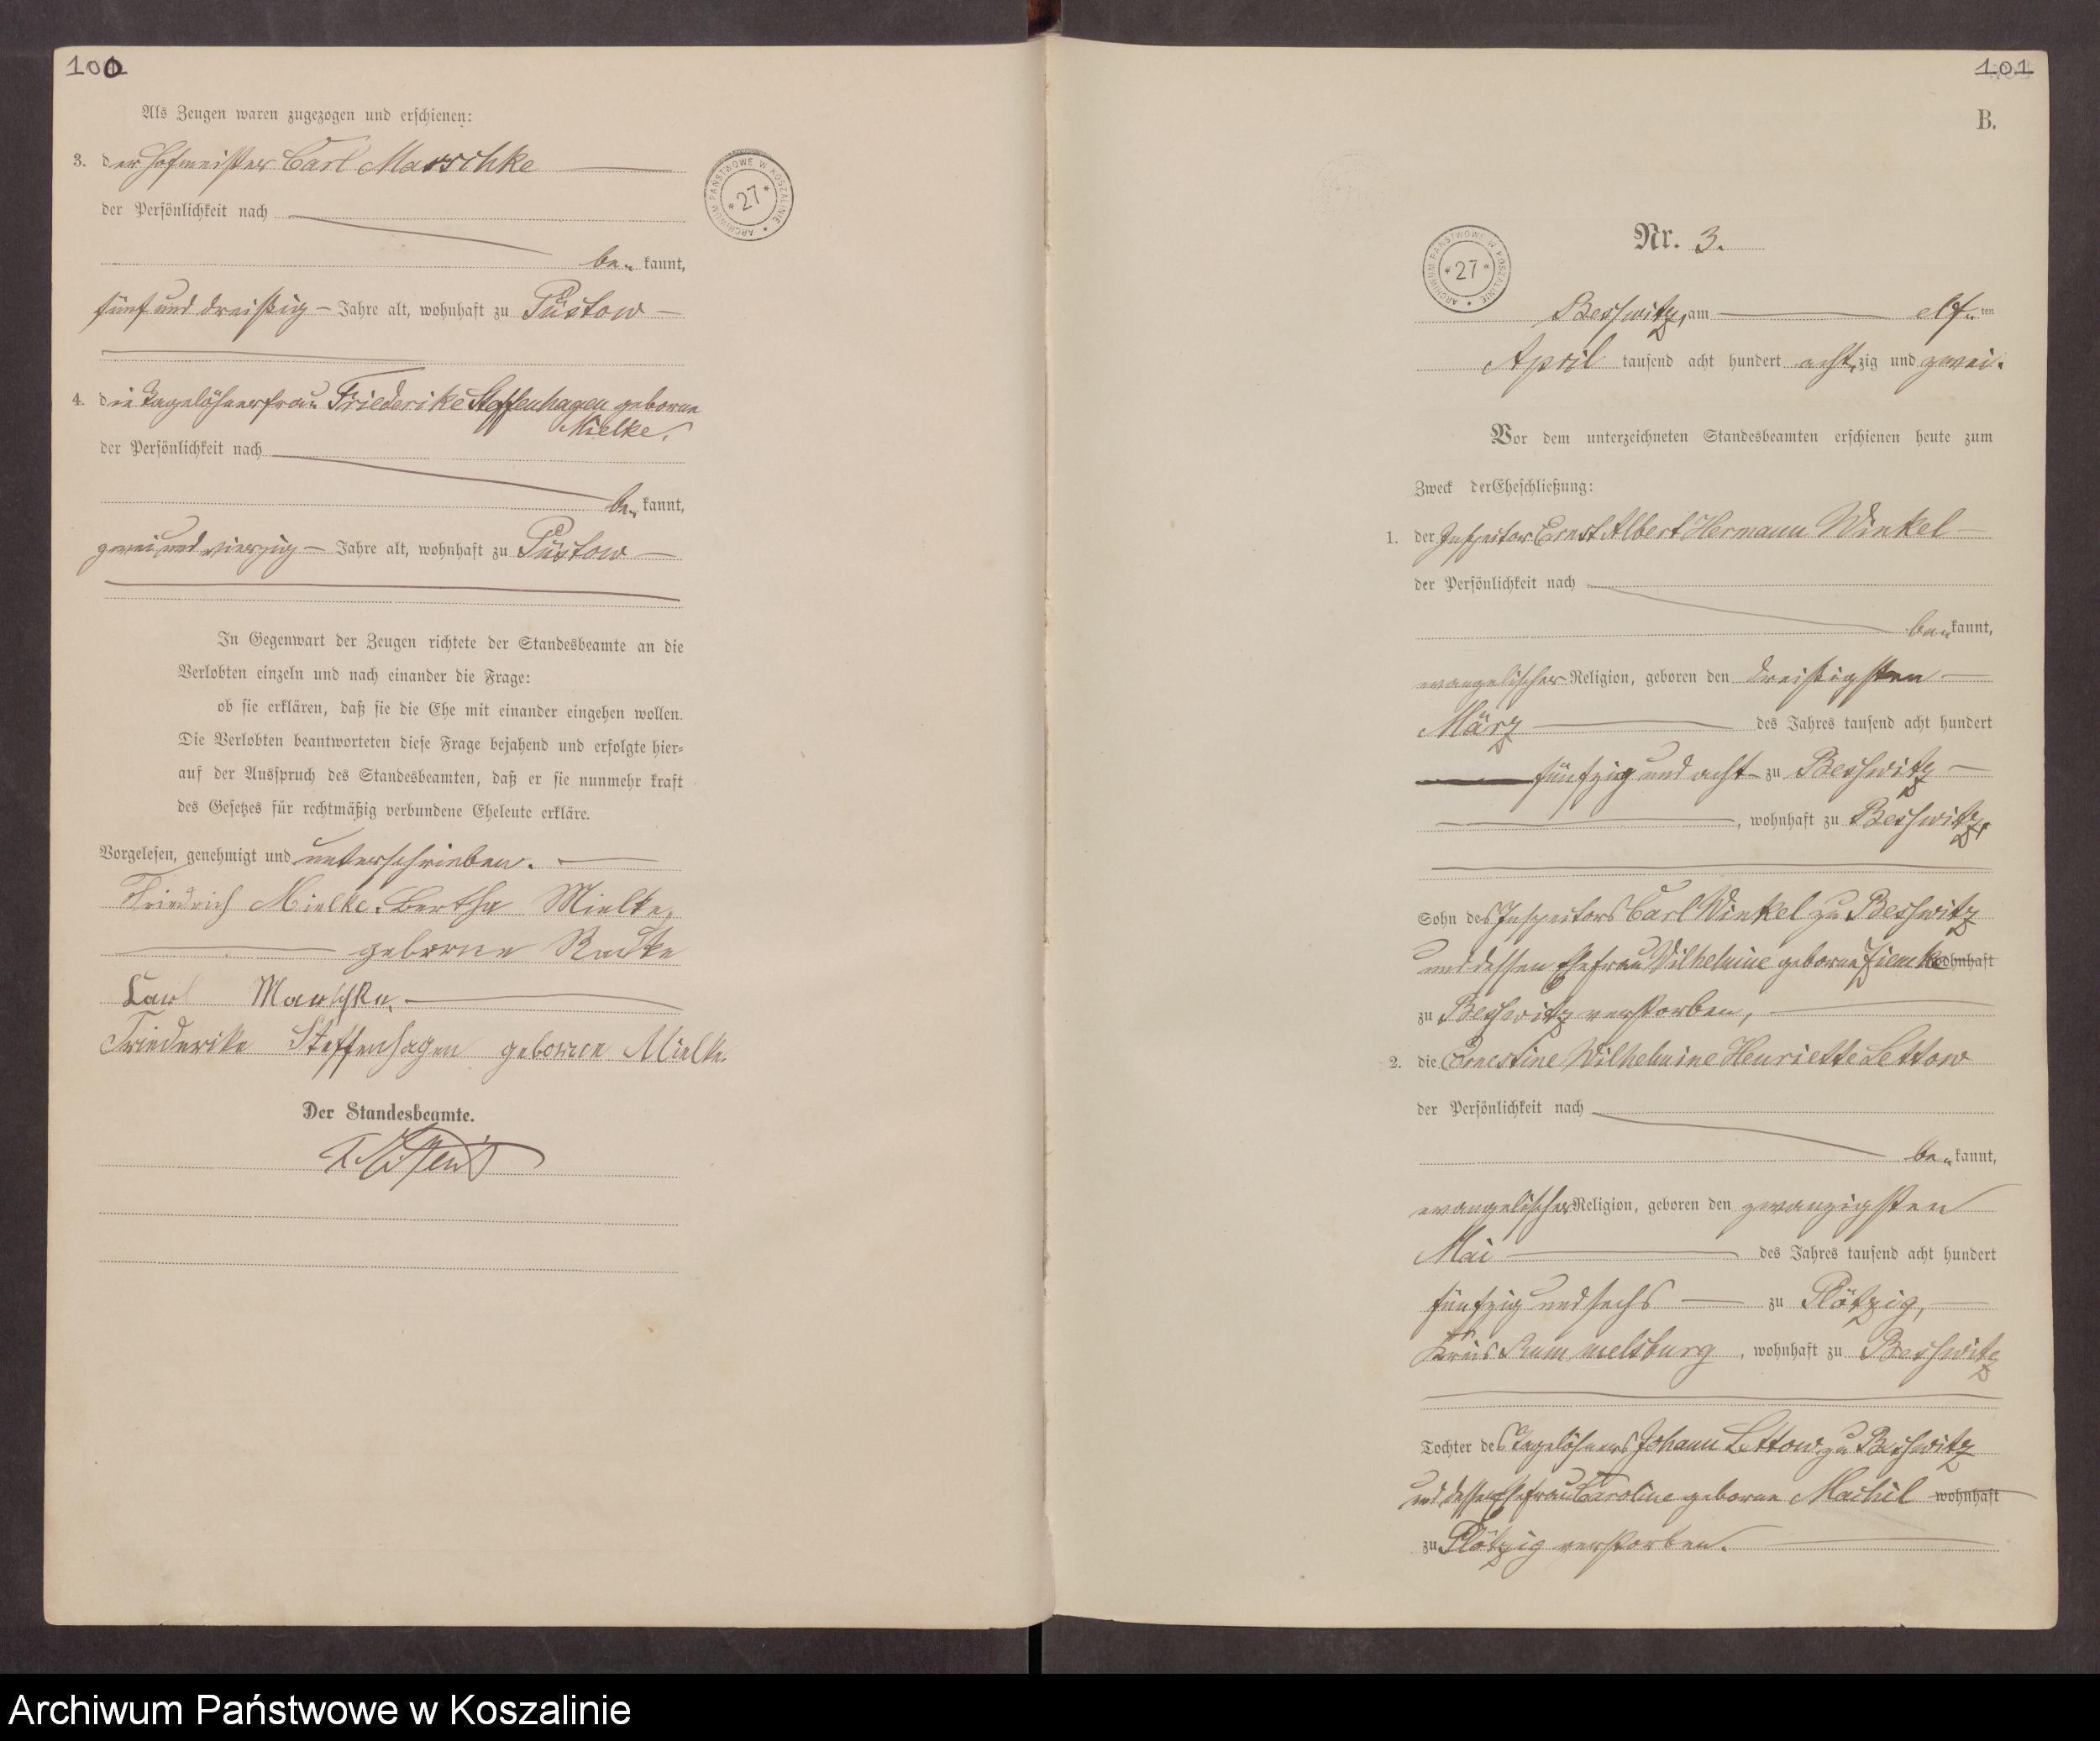 100
Als Zeugen waren zugezogen und erschienen:
3. der Hofmeister Carl Marschke
der Persönlichkeit nach
be kannt,
fünf und dreißig Jahre alt, wohnhaft zu Püstow
4. die Tagelöhnerfrau Friederike Steffenhagen geborne
Mielke,
der Persönlichkeit nach
be kannt,
zwei und vierzig Jahre alt, wohnhaft zu Püstow
In Gegenwart der Zeugen richtete der Standesbeamte an die
Verlobten einzeln und nach einander die Frage:
ob sie erklären, daß sie die Ehe mit einander eingehen wollen.
Die Verlobten beantworteten diese Frage bejahend und erfolgte hier-
auf der Ausspruch des Standesbeamten, daß er sie nunmehr kraft
des Gesetzes für rechtmäßig verbundene Eheleute erkläre.
Vorgelesen, genehmigt und unterschrieben.
Friedrich Mielke. Bertha Mielke,
geborne Radke
Carl Marschke,
Friederike Steffenhagen geborne Mielke
Der Standesbeamte.
ARCHIWUM PAŃSTWOWE W KOSZALINIE * 27 *
101
B.
ARCHIWUM PAŃSTWOWE W KOSZALINIE * 27 *
Nr. 3.
Beßwitz, am elf ten
April tausend acht hundert acht zig und zwei.
Vor dem unterzeichneten Standesbeamten erschienen heute zum
Zweck der Eheschließung:
1. der Inspektor Ernst Albert Hermann Winkel
der Persönlichkeit nach
be kannt,
evangelischer Religion, geboren den dreißigsten
März des Jahres tausend acht hundert
fünfzig und acht zu Beßwitz
, wohnhaft zu Beßwitz,
Sohn des Inspektors Carl Winkel zu Beßwitz
und dessen Ehefrau Wilhelmine geborne Ziemke wohnhaft
zu Beßwitz verstorben,
2. die Ernestine Wilhelmine Henriette Lettow
der Persönlichkeit nach
be kannt,
evangelischer Religion, geboren den zwanzigsten
Mai des Jahres tausend acht hundert
fünfzig und sechs zu Plötzig,
Kreis Rummelsburg, wohnhaft zu Beßwitz
Tochter des Tagelöhners Johann Lettow zu Beßwitz
und dessen Ehefrau Caroline geborne Machil wohnhaft
zu Plötzig verstorben.
Archiwum Państwowe w Koszalinie